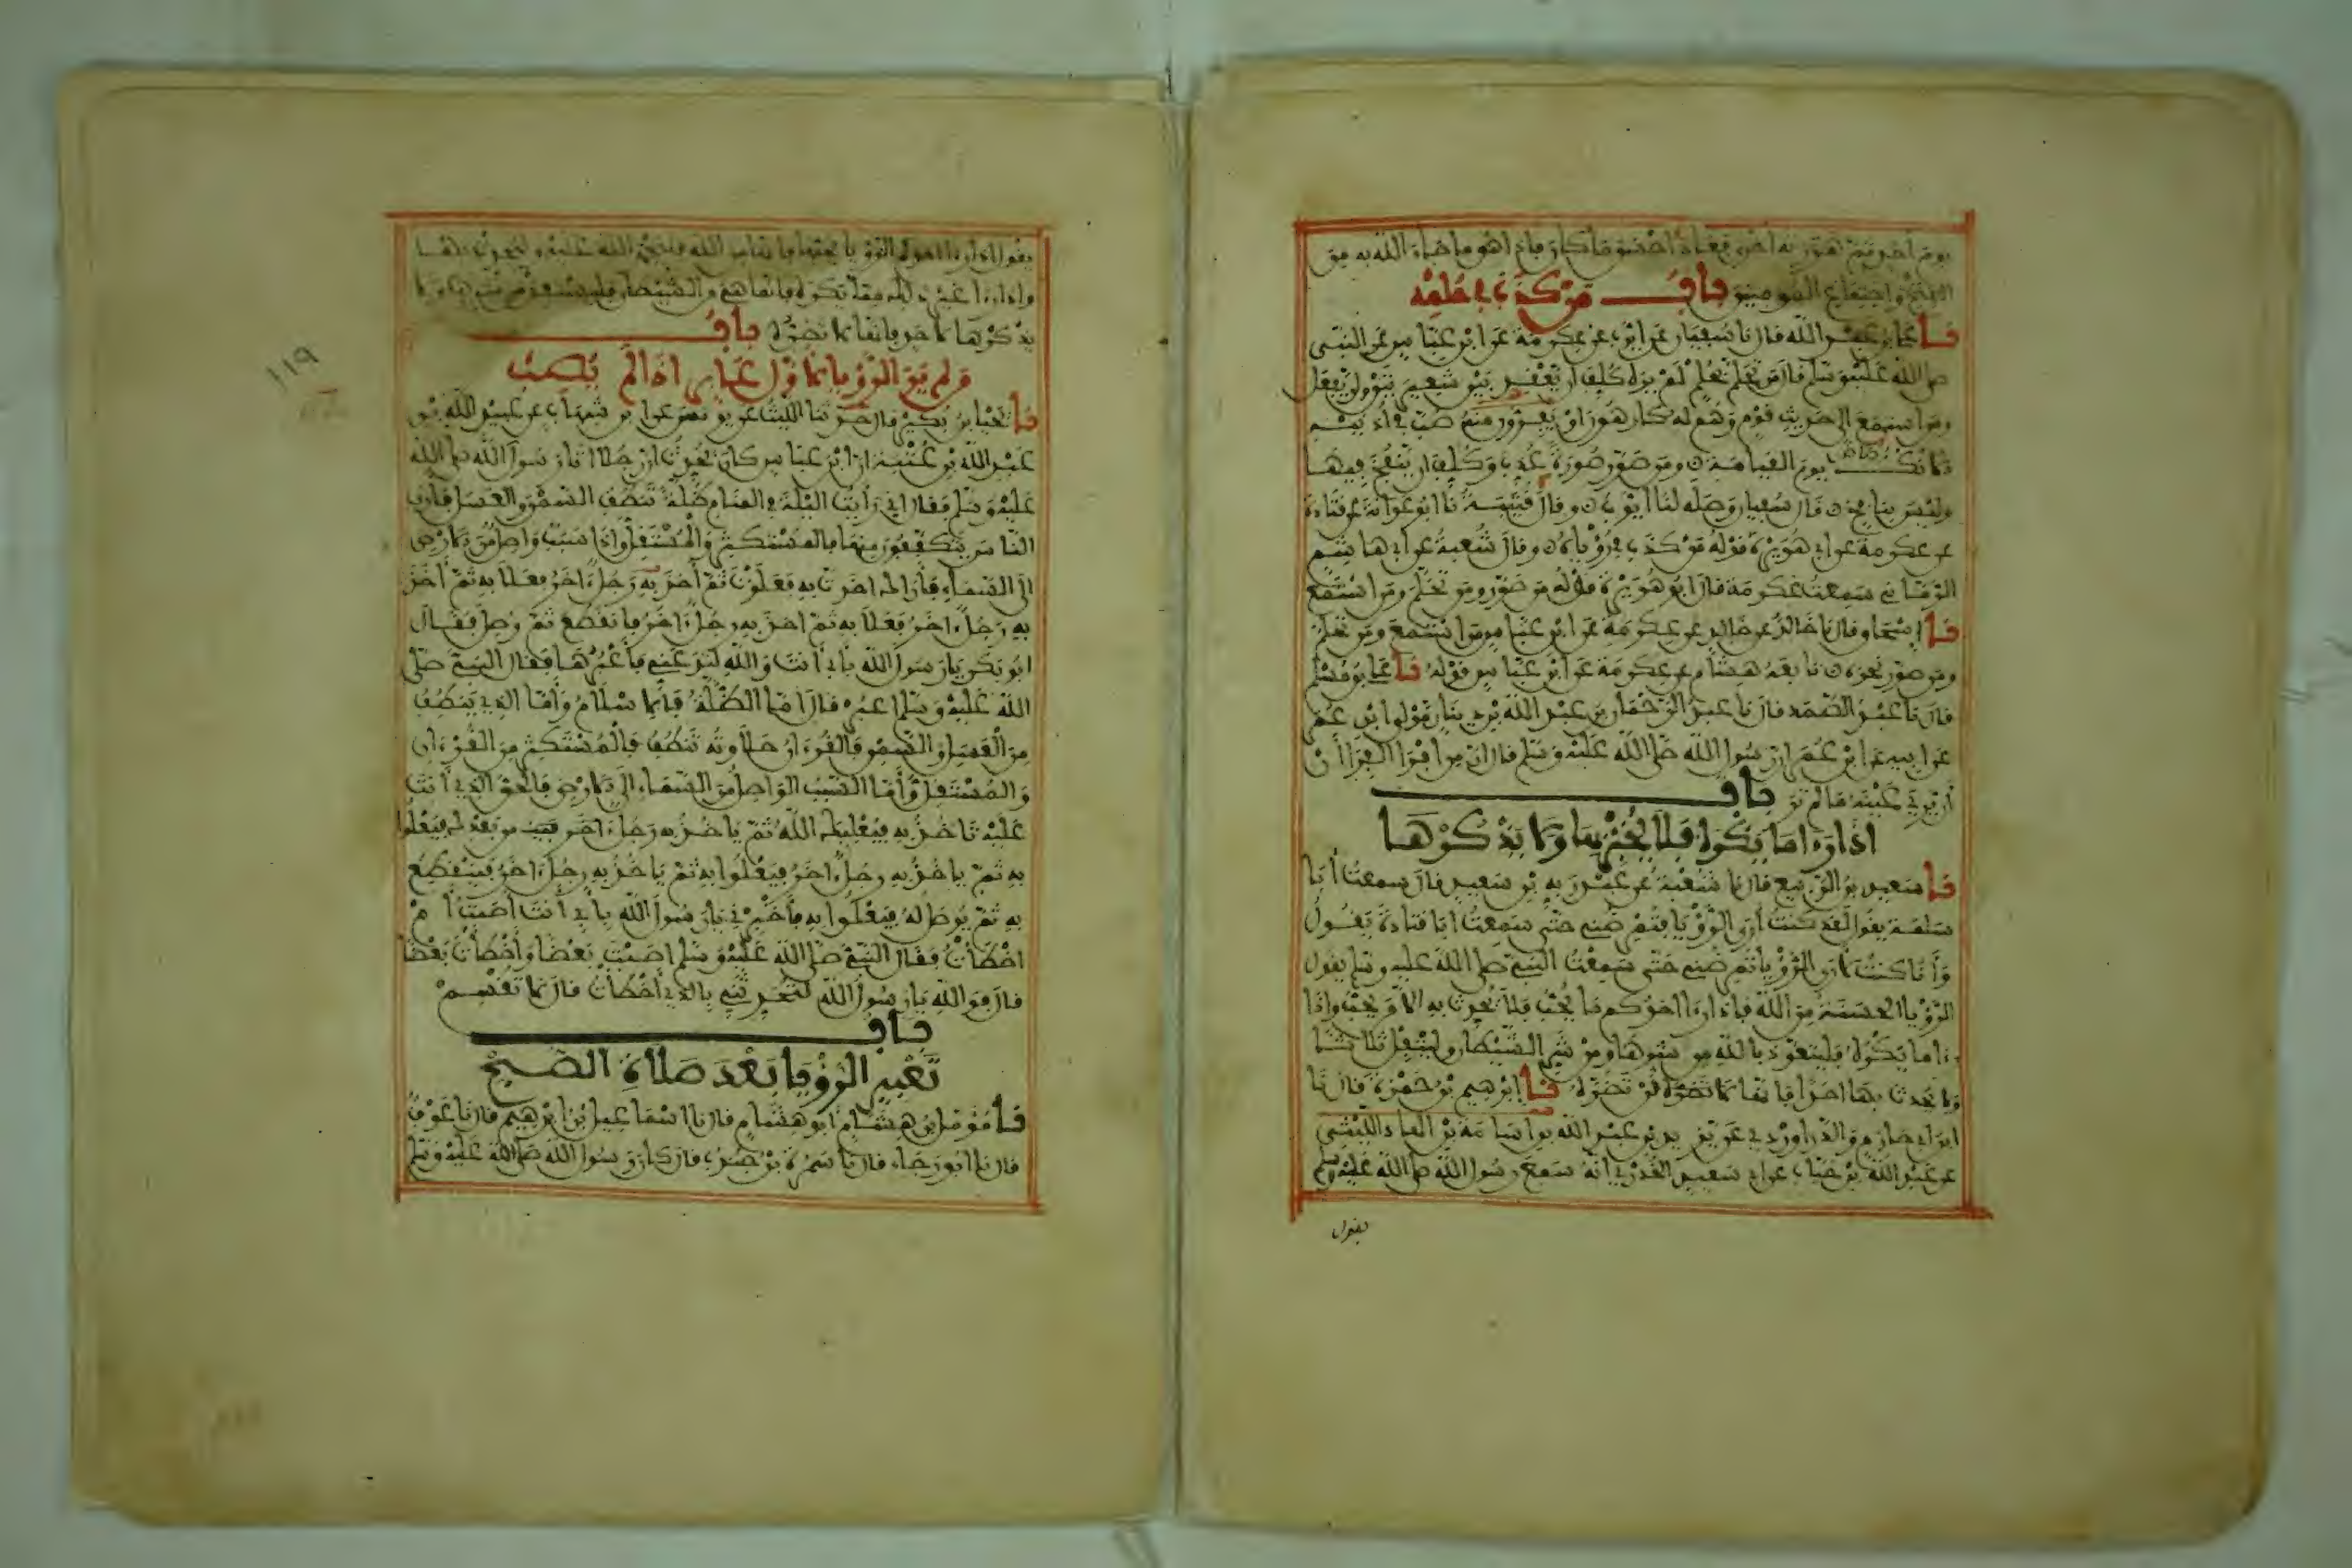 يوم احد ثم هززته اخرى فعاد احسن ما كان فاذا هو ما جاء الله به من
الفتح واجتماع المومنين باب من كذب في حلمه
نا علي بن عبد الله قال نا سفيان عن ايوب عن عكرمة عن ابن عباس عن النبي
صلى الله عليه وسلم قال من تحلم بحلم لم يره كلف ان يعقد بين شعيرتين ولن يفعل
ومن استمع الى حديث قوم وهم له كارهون او يفرون منه صب في اذنيه
الانك يوم القيامة ومن صور صورة عذب وكلف ان ينفخ فيها
وليس بنافخ قال سفيان وصله لنا ايوب وقال قتيبة نا ابو عوانة عن قتادة
عن عكرمة عن ابي هريرة قوله من كذب في رؤياه وقال شعبة عن ابي هاشم
الرماني سمعت عكرمة قال ابو هريرة قوله من صور ومن تحلم ومن استمع
نا اسحاق قال نا خالد عن خالد عن عكرمة عن ابن عباس من استمع ومن تحلم
ومن صور نحوه تابعه هشام عن عكرمة عن ابن عباس قوله نا علي بن مسلم
قال نا عبد الصمد قال نا عبد الرحمان بن عبد الله بن دينار مولى ابن عمر
عن ابيه عن ابن عمر ان رسول الله صلى الله عليه وسلم قال ان من افرى الفرا ان
ان يري عينيه ما لم تر باب
اذا راى ما يكره فلا يخبر بها ولا يذكرها
نا سعيد بن الربيع قال نا شعبة عن عبد ربه بن سعيد قال سمعت ابا
سلمة يقول لقد كنت ارى الرؤيا فتمرضني حتى سمعت ابا قتادة يقول
وانا كنت لارى الرؤيا تمرضني حتى سمعت النبي صلى الله عليه وسلم يقول
الرؤيا الحسنة من الله فاذا راى احدكم ما يحب فلا يحدث به الا من يحب واذا
راى ما يكره فليتعوذ بالله من شرها ومن شر الشيطان وليتفل ثلاثا
ولا يحدث بها احدا فانها لا تضره لن تضره نا ابرهيم بن حمزة قال نا
ابن ابي حازم والدراوردي عن يزيد بن عبد الله بن اسامة بن الهاد الليثي
عن عبد الله بن خباب عن ابي سعيد الخدري انه سمع رسول الله صلى الله عليه وسلم
يقول
يقول اذا راى احدكم الرؤيا يحبها فانها من الله فليحمد الله عليه وليحدث بها
واذا راى غير ذلك مما يكره فانما هي من الشيطان فليستعذ من شرها ولا
يذكرها لاحد فانها لا تضره باب
من لم ير الرؤيا لاول عابر اذا لم يصب
نا يحيا بن بكير قال حدثنا الليث عن يونس عن ابن شهاب عن عبيد الله بن
عبد الله بن عتبة ان ابن عباس كان يحدث ان رجلا اتى رسول الله صلى الله
عليه وسلم فقال اني رايت الليلة في المنام ظلة تنطف السمن والعسل فارى
الناس يتكففون منها فالمستكثر والمستقل واذا سبب واصل من الارض
الى السماء فاراك اخذت به فعلوت ثم اخذ به رجل اخر فعلا به ثم اخذ
به رجل اخر فعلا به ثم اخذ به رجل اخر فانقطع ثم وصل فقال
ابو بكر يا رسول الله بابي انت والله لتدعني فاعبرها فقال النبي صلى
الله عليه وسلم اعبره قال اما الظلة فالاسلام واما الذي ينطف
من العسل والسمن فالقرءان حلاوته تنطف فالمستكثر من القرءان
والمستقل واما السبب الواصل من السماء الى الارض فالحق الذي انت
عليه تاخذ به فيعليك الله ثم ياخذ به رجل اخر من بعدك فيعلوا
به ثم ياخذ به رجل اخر فيعلوا به ثم ياخذ به رجل اخر فينقطع
به ثم يوصل له فيعلوا به فاخبرني يا رسول الله بابي انت اصبت ام
اخطات فقال النبي صلى الله عليه وسلم اصبت بعضا واخطات بعضا
قال فوالله يا رسول الله لتحدثني بالذي اخطات قال لا تقسم
باب
تعبير الرؤيا بعد صلاة الصبح
نا مؤمل بن هشام ابو هشام قال نا اسماعيل بن ابرهيم قال نا عوف
قال نا ابو رجاء قال نا سمرة بن جندب قال كان رسول الله صلى الله عليه وسلم
١١٩